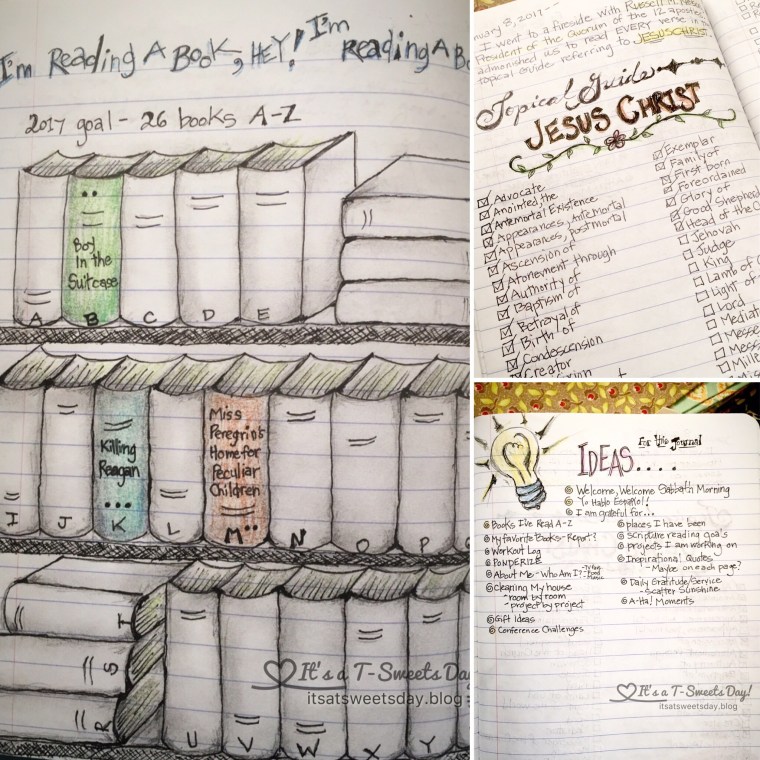 I'm Reading A Book, HEY! I'm Reading A Bo
2017 goal - 26 books A-Z
Boy
In the
Suitcase
A B C D E
Killing
Reagan
Miss
Peregrin's
Home for
Peculiar
Children
I J K L M N O P
T
S
R
U V W X Y
It's a T-Sweets Day
itsatsweetsday.blog
nuary 8, 2017 --
I went to a fireside with Russell M. Nels
President of the Quorum of the 12 apostle
admonished us to read EVERY verse in
topical Guide referring to JESUS CHRIST.
Topical Guide
JESUS CHRIST
Advocate
Anointed, the
Antemortal Existence
Appearances, Antemortal
Appearances, postmortal
Ascension of
Atonement through
Authority of
Baptism of
Betrayal of
Birth of
Condescension
Creator
Exemplar
Family of
First born
Foreordained
Glory of
Good Shepherd
Head of the C
Jehovah
Judge
King
Lamb of
Light of
Lord
Mediat
Messe
Mess
Mille
IDEAS.... For this Journal
Welcome, Welcome Sabbath Morning
Yo Hablo Español!
I am grateful for...
Books I've Read A-Z
My favorite Books - Report?
Workout Log
PONDERIZE
About Me - Who Am I?
Cleaning My house
- room by room
- project by project
Gift Ideas
Conference Challenges
places I have been
Scripture reading goals
projects I am working on
Inspirational Quotes
- Maybe on each page?
Daily Gratitude/Service
- Scatter Sunshine
A-Ha! Moments
It's a T-Sweets Day!
itsatsweetsday.blog